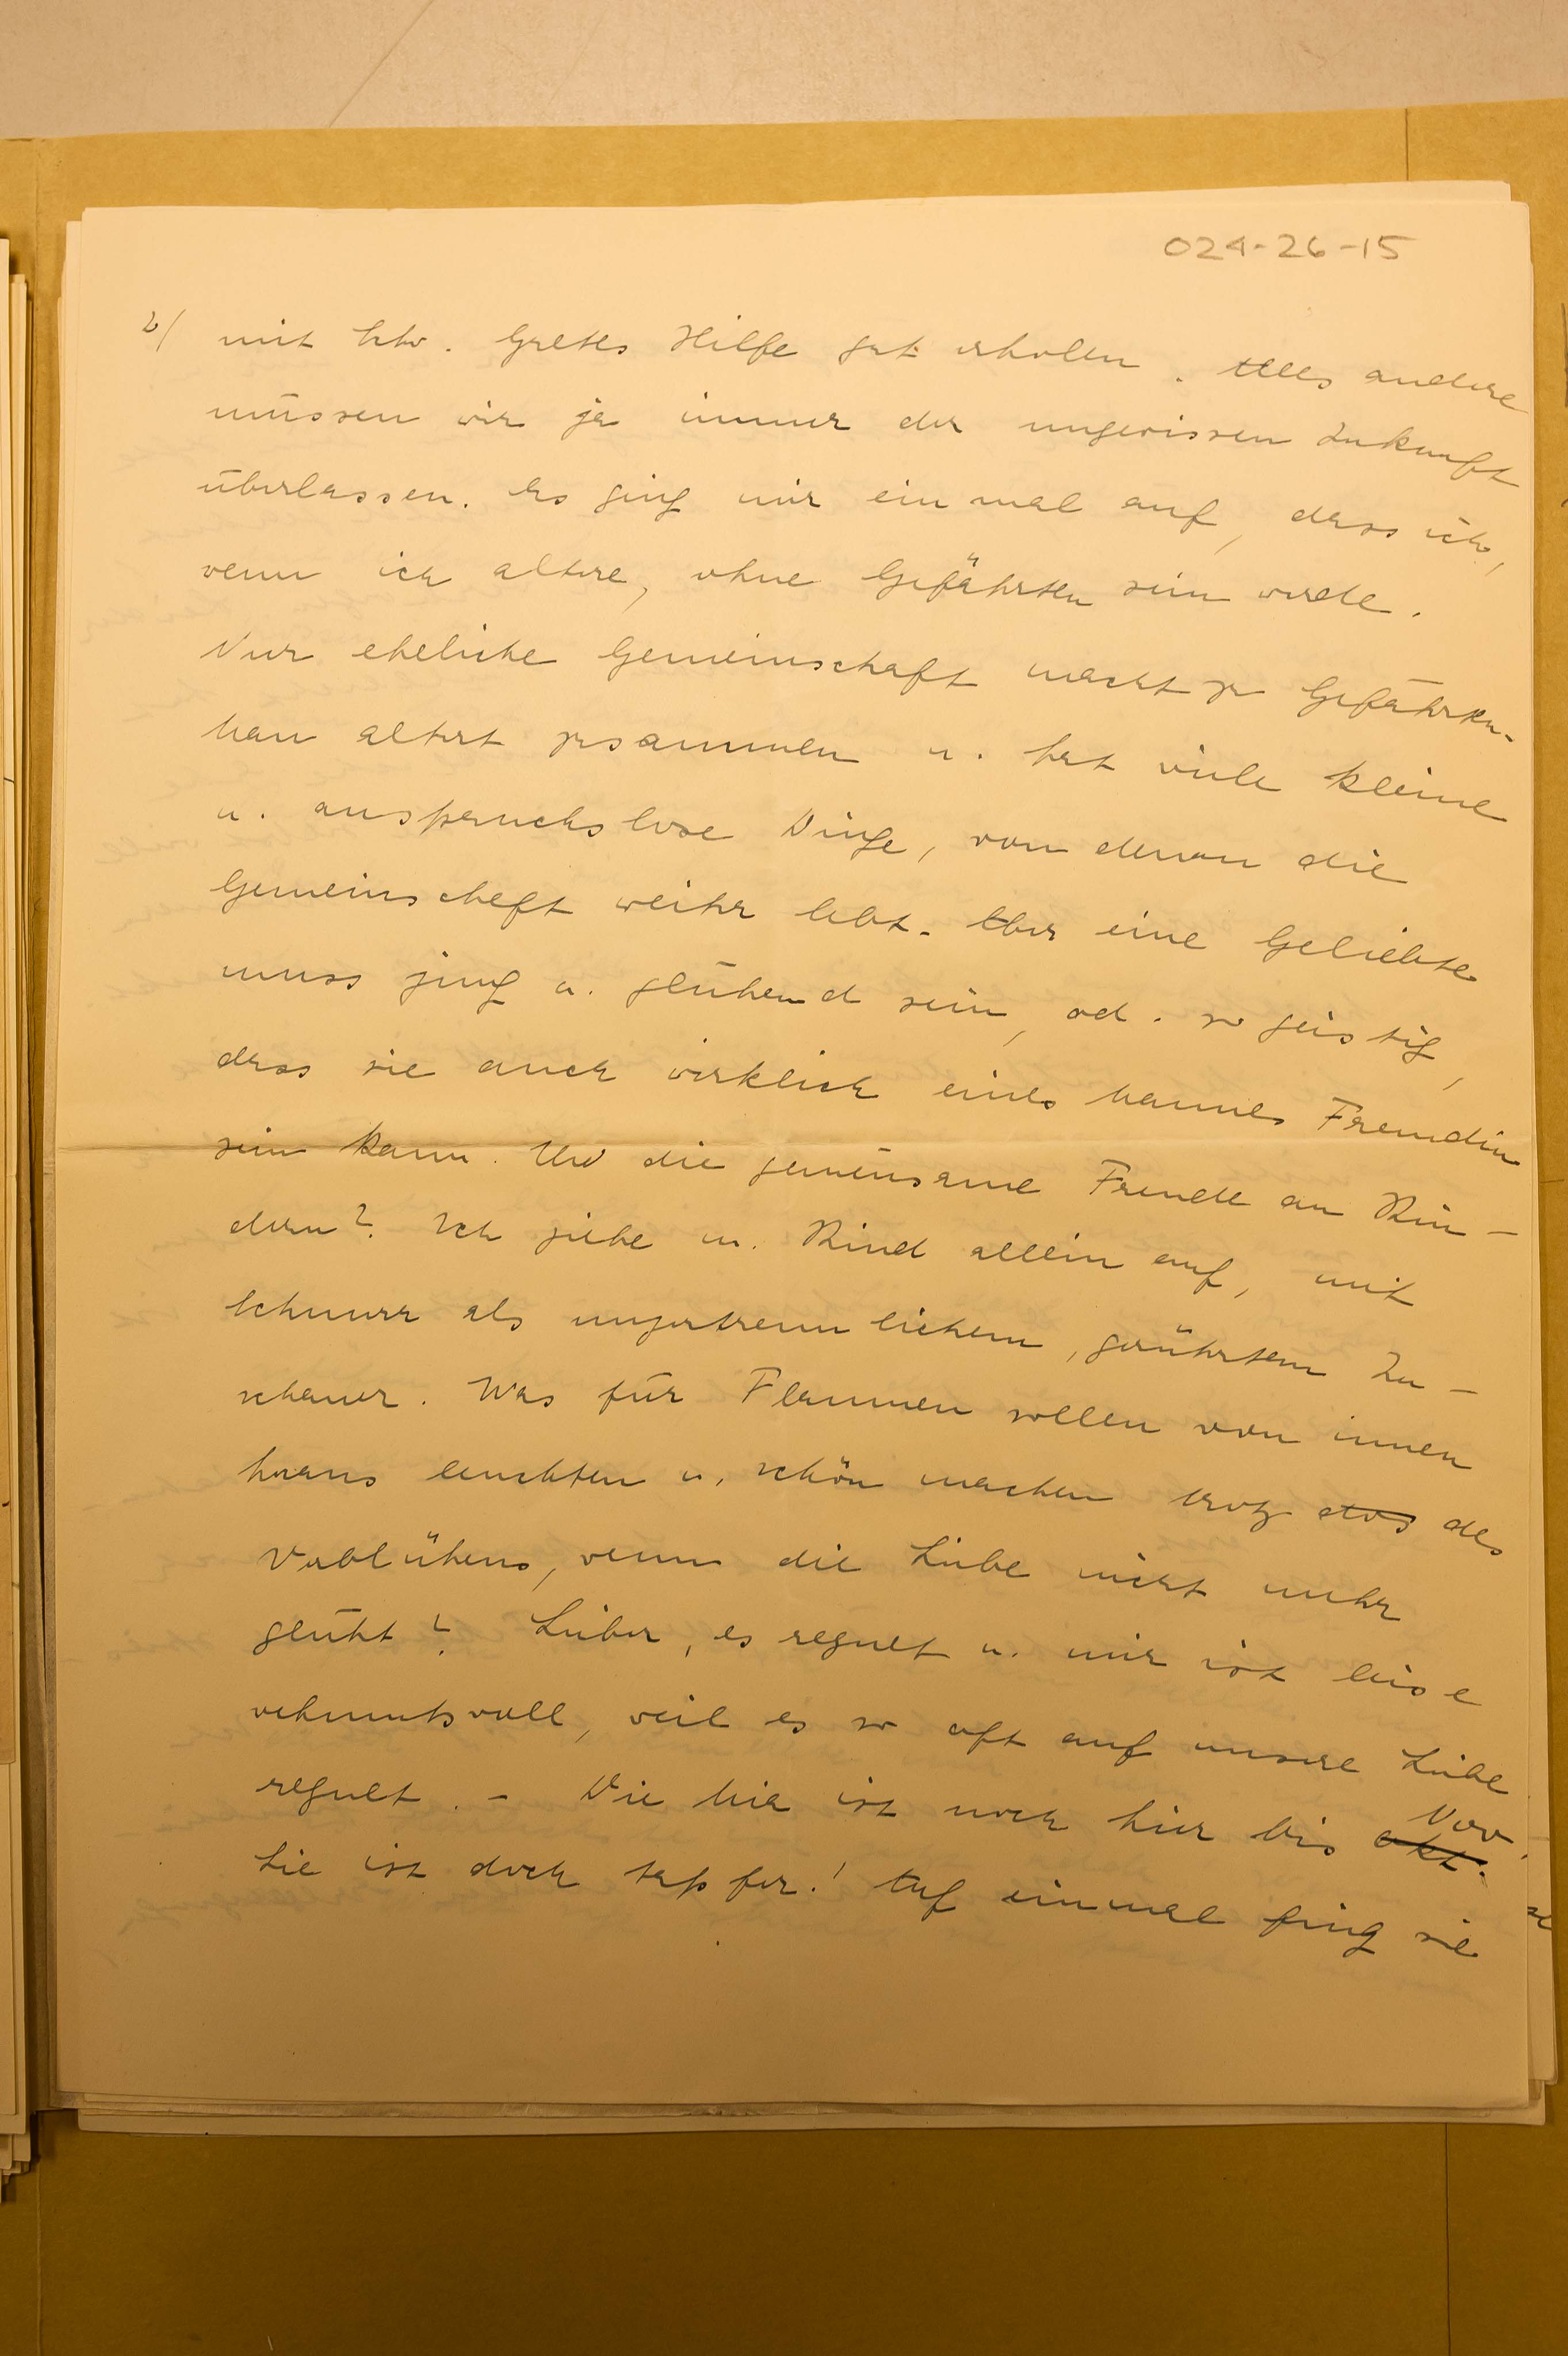 024-26-15
2/ mit Schw. Gretes Hilfe gut erholen. Alles andere
müssen wir ja immer der ungewissen Zukunft
überlassen. Es ging mir einmal auf, dass ich,
wenn ich altere, ohne Gefährten sein werde.
Nur eheliche Gemeinschaft macht zu Gefährten.
Man altert zusammen u. hat viele kleine
u. anspruchslose Dinge, von denen die
Gemeinschaft weiter lebt. Aber eine Geliebte
muss jung u. glühend sein, od. so geistig,
dass sie auch wirklich eines Mannes Freundin
sein kann. Und die gemeinsame Freude an Kin-
dern? Ich ziehe m. Kind allein auf, mit
Schnurr als unzertrennlichem, gerührtem Zu-
schauer. Was für Flammen sollen von innen
heraus leuchten u. schön machen trotz des
Verblühens, wenn die Liebe nicht mehr
glüht? Lieber, es regnet u. mir ist leise
wehmutsvoll, weil es so oft auf unsere Liebe
regnet. - Die Mia ist noch hier bis Okt. Nov.
Sie ist doch tapfer! Auf einmal fing sie